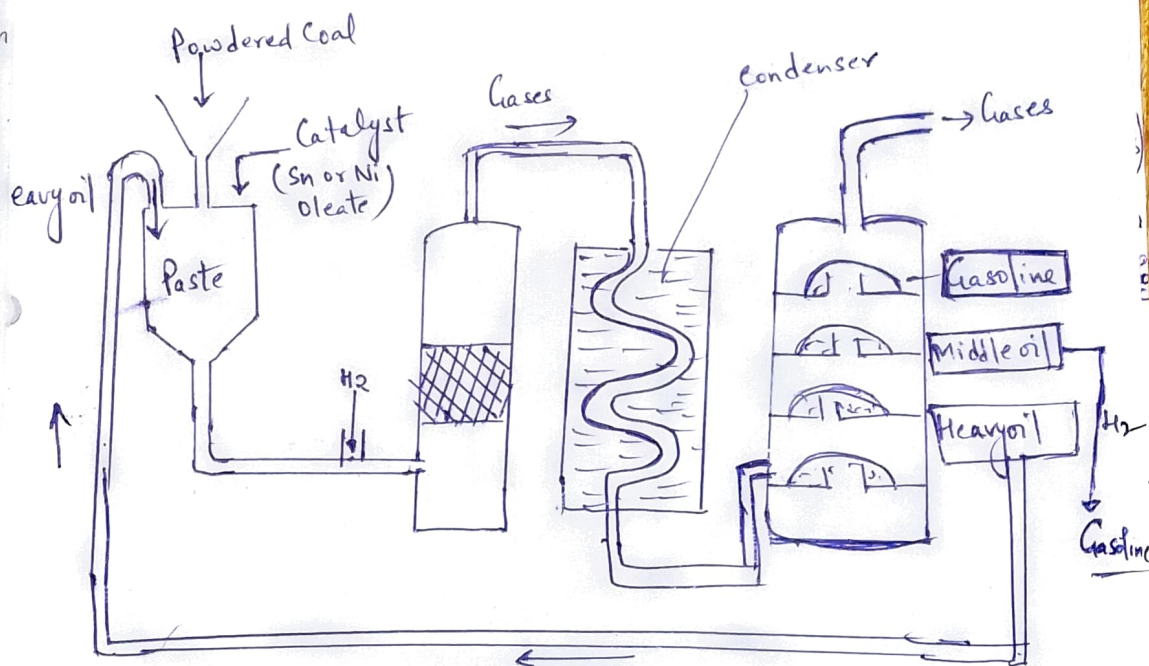 Powdered Coal
Catalyst
(Sn or Ni
Oleate)
eavy oil
Paste
H2
Gases
Condenser
Gases
Gasoline
Middle oil
Heavyoil
H2
Gasoline